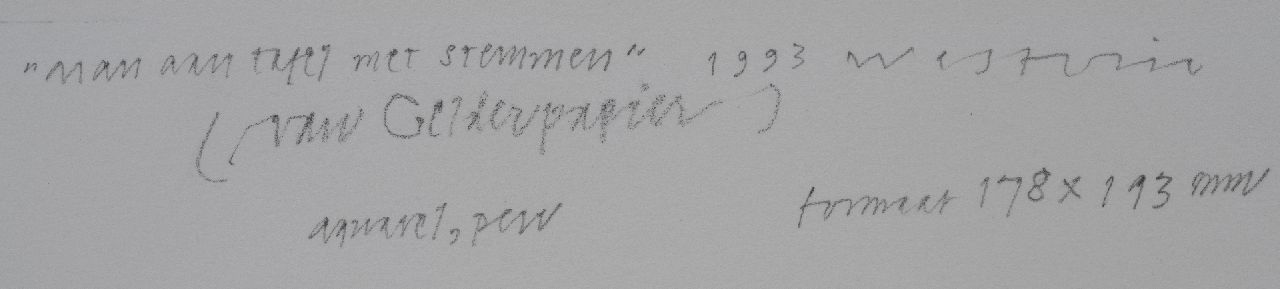 "man aan tafel met stemmen" 1993
(van Gelderpapier)
aquarel, pen formaat 178 x 193 mm